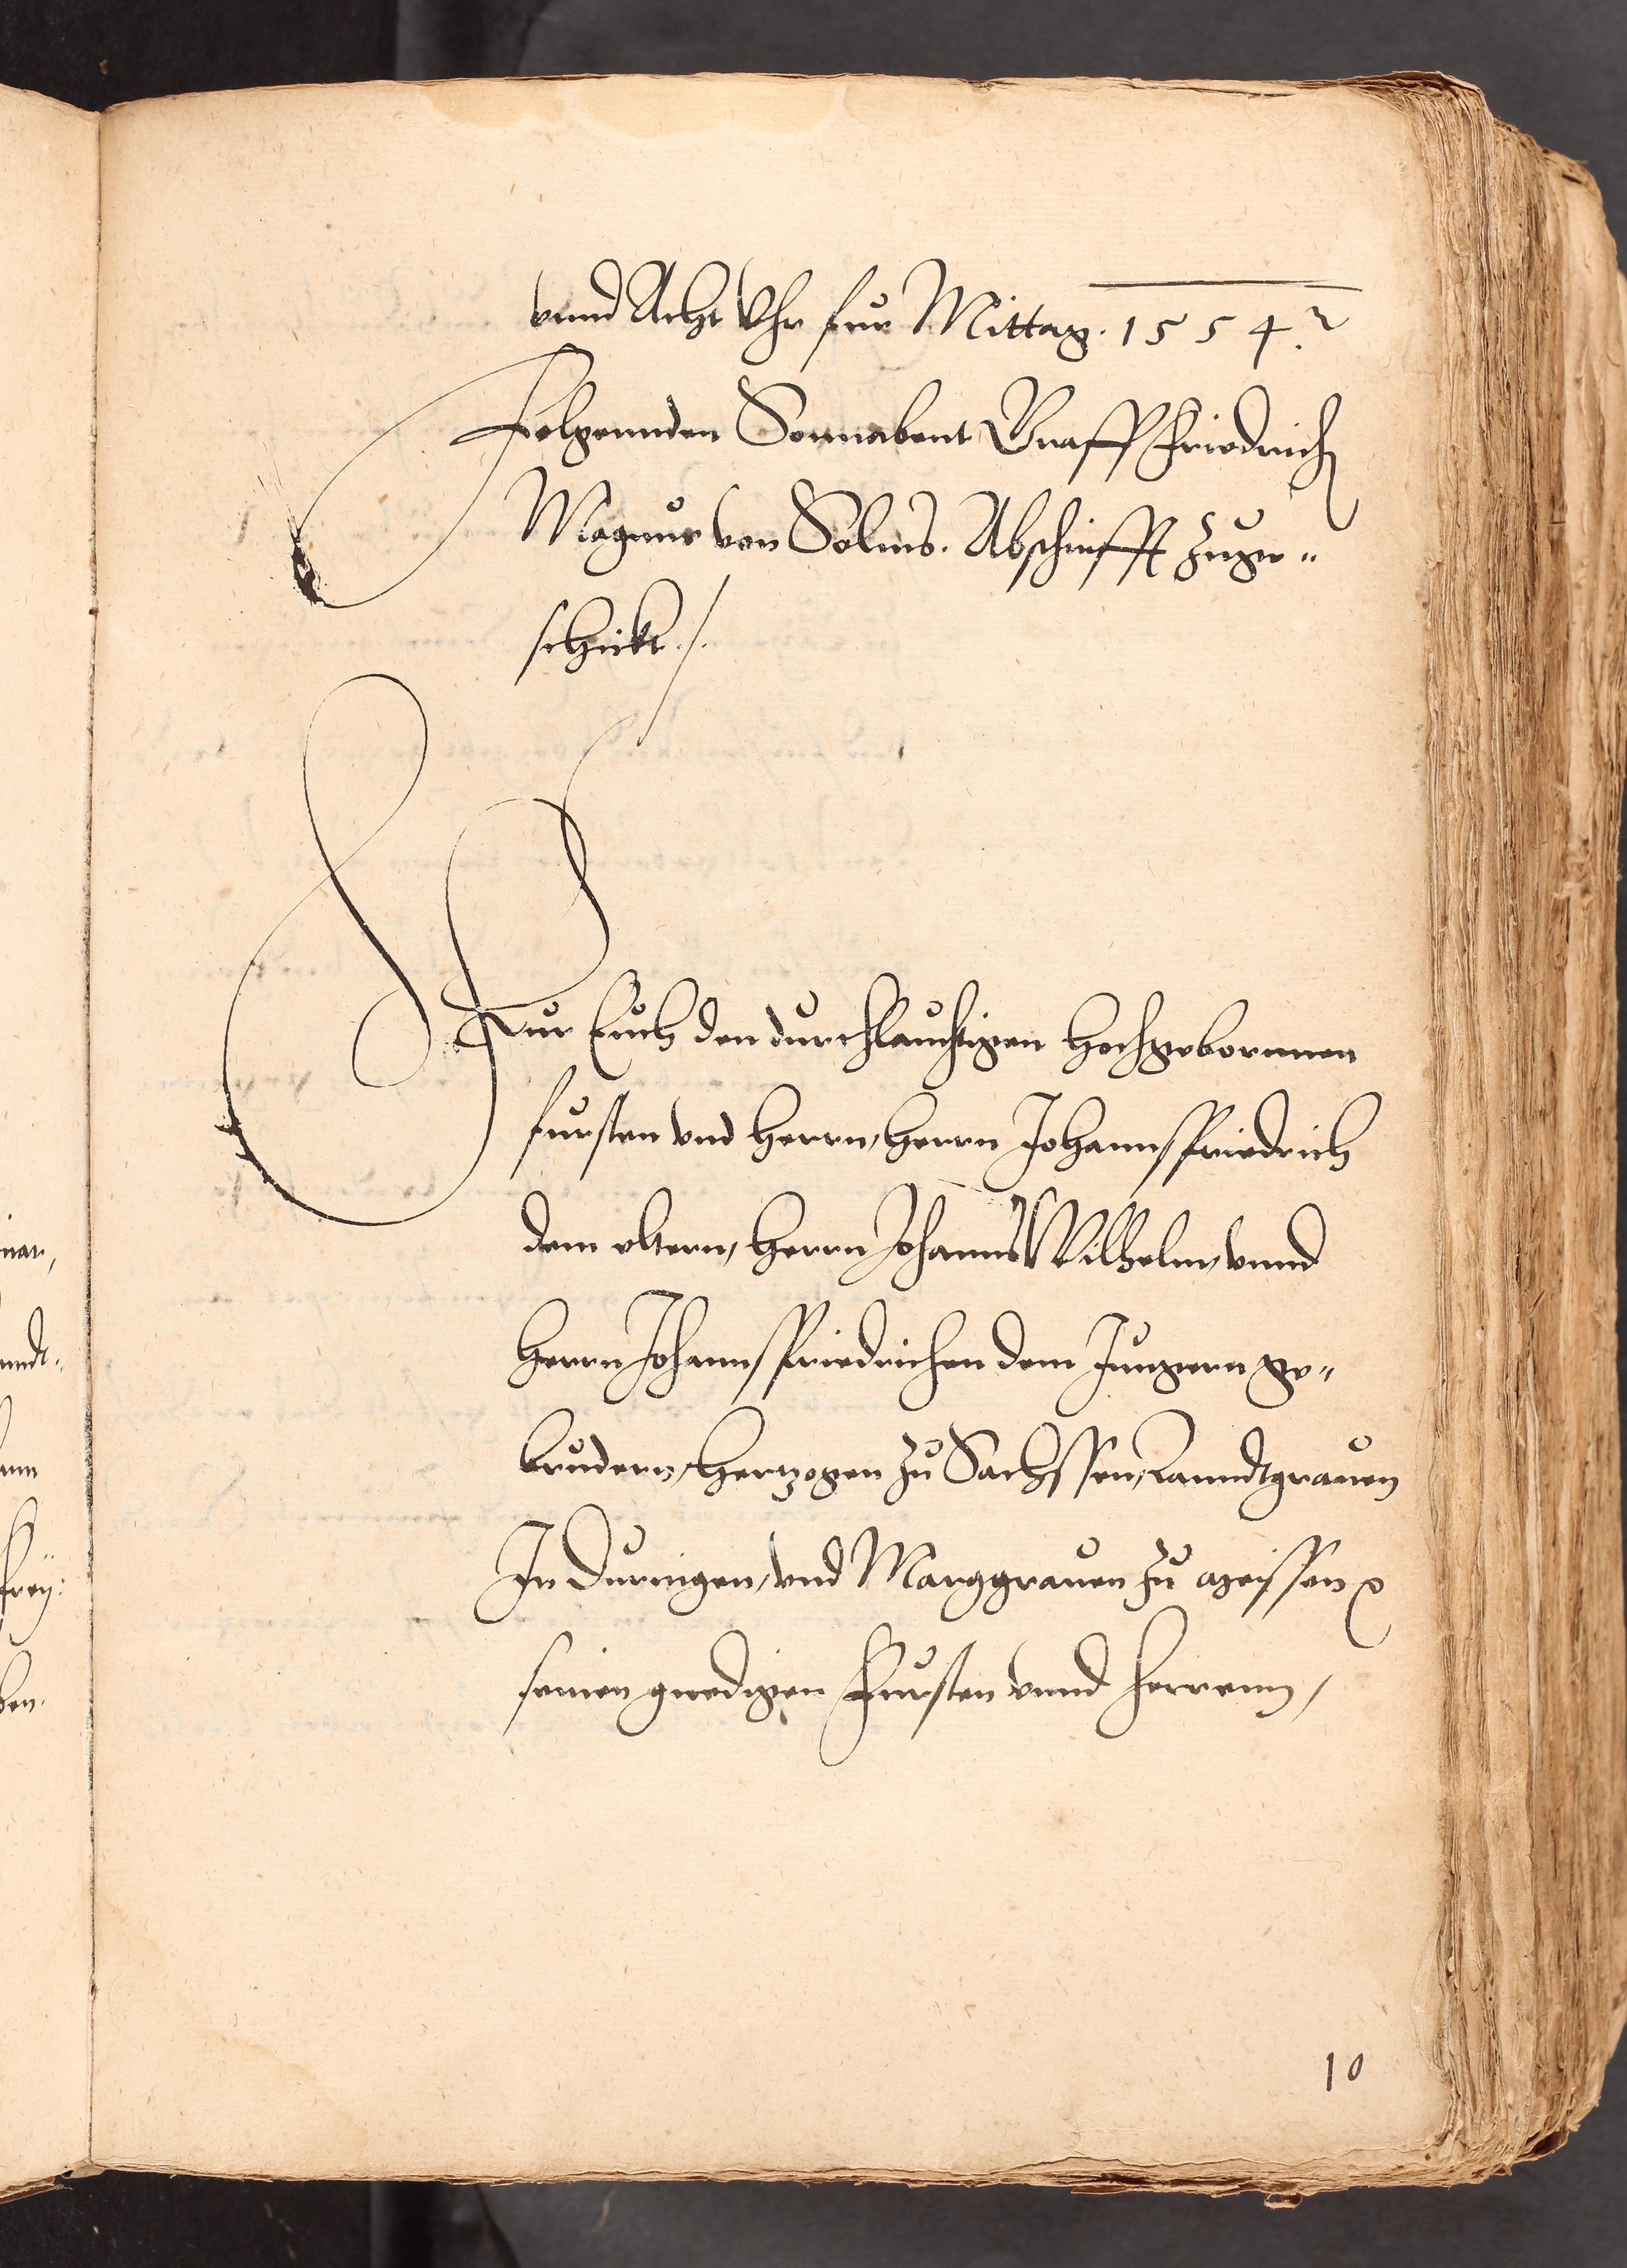 vnnd Acht Vhr fur Mittag. 1554.
Folgennden Sonnabent Graff Friedrich
Magnus von Solms. Abschrifft zuge„
schickt ./.
Fur Euch den durchlauchtigen hochgebornnen
fursten vnd herrn, herrn Johanns friedrich
dem eltern, herrn Johanns Wilhelm, vnnd
herrn Johanns friedrichen dem Jungern ge„
brudern, hertzogen zu Sachssen, Lanndtgrauen
In Duringen, vnd Marggrauen zu meissen
seinen gnedigen Fursten vnnd herrenn,
10